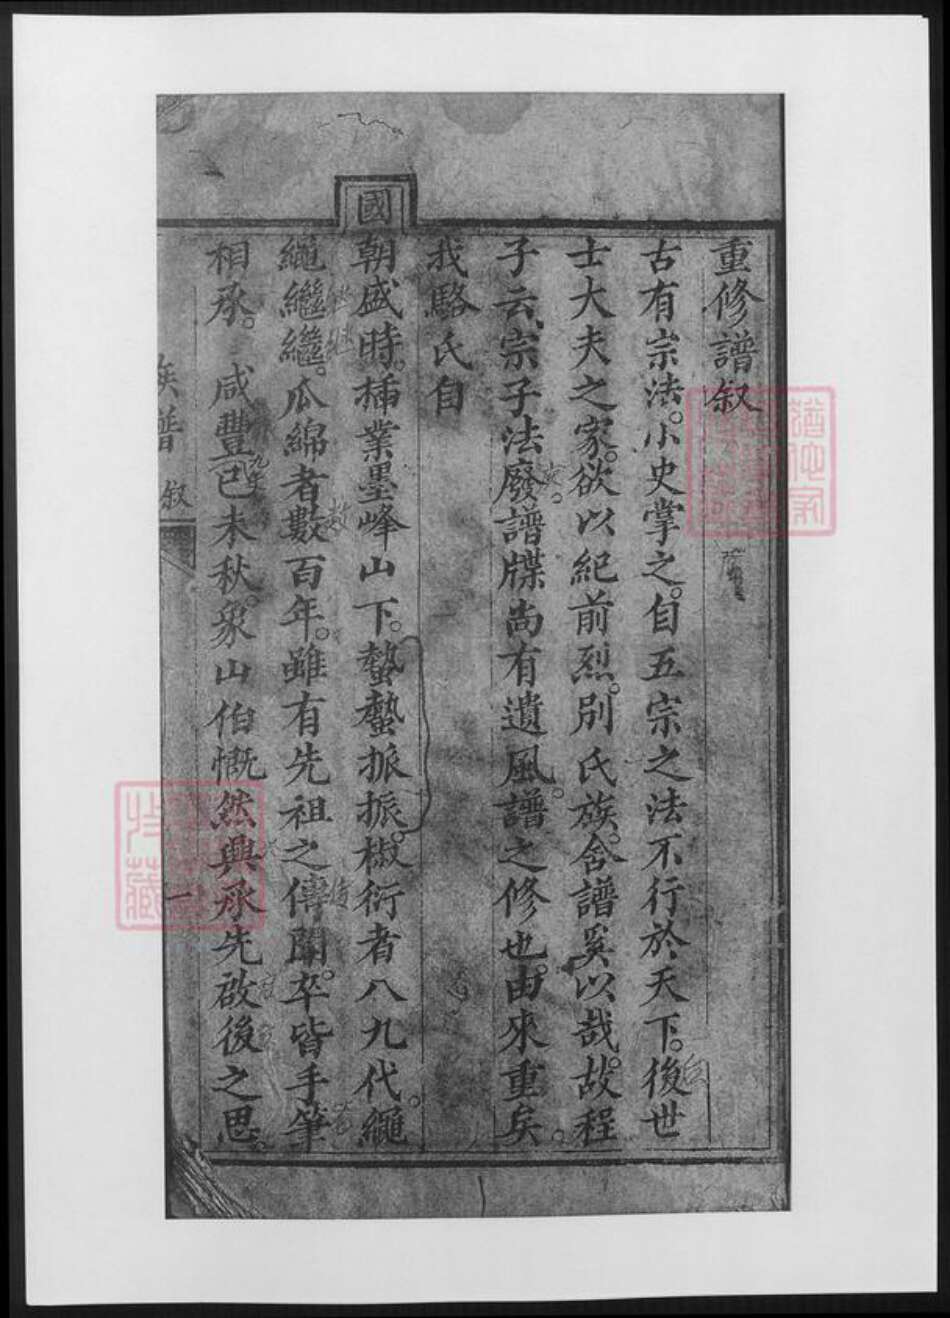 重修譜叙
古有宗法。小史掌之。自五宗之法不行於天下。後世
士大夫之家。欲以紀前烈。別氏族。舍譜奚以哉。故程
子云、宗子法廢。譜牒尚有遺風。譜之修也。由來重矣。
我駱氏自
國
朝盛時。插業墨峰山下。蟄蟄振振。椒衍者八九代。繩
繩繼繼。瓜綿者數百年。雖有先祖之傳聞。卒皆手筆
相承。咸豐已未秋。象山伯慨然興承先啟後之思。
族譜 叙 一